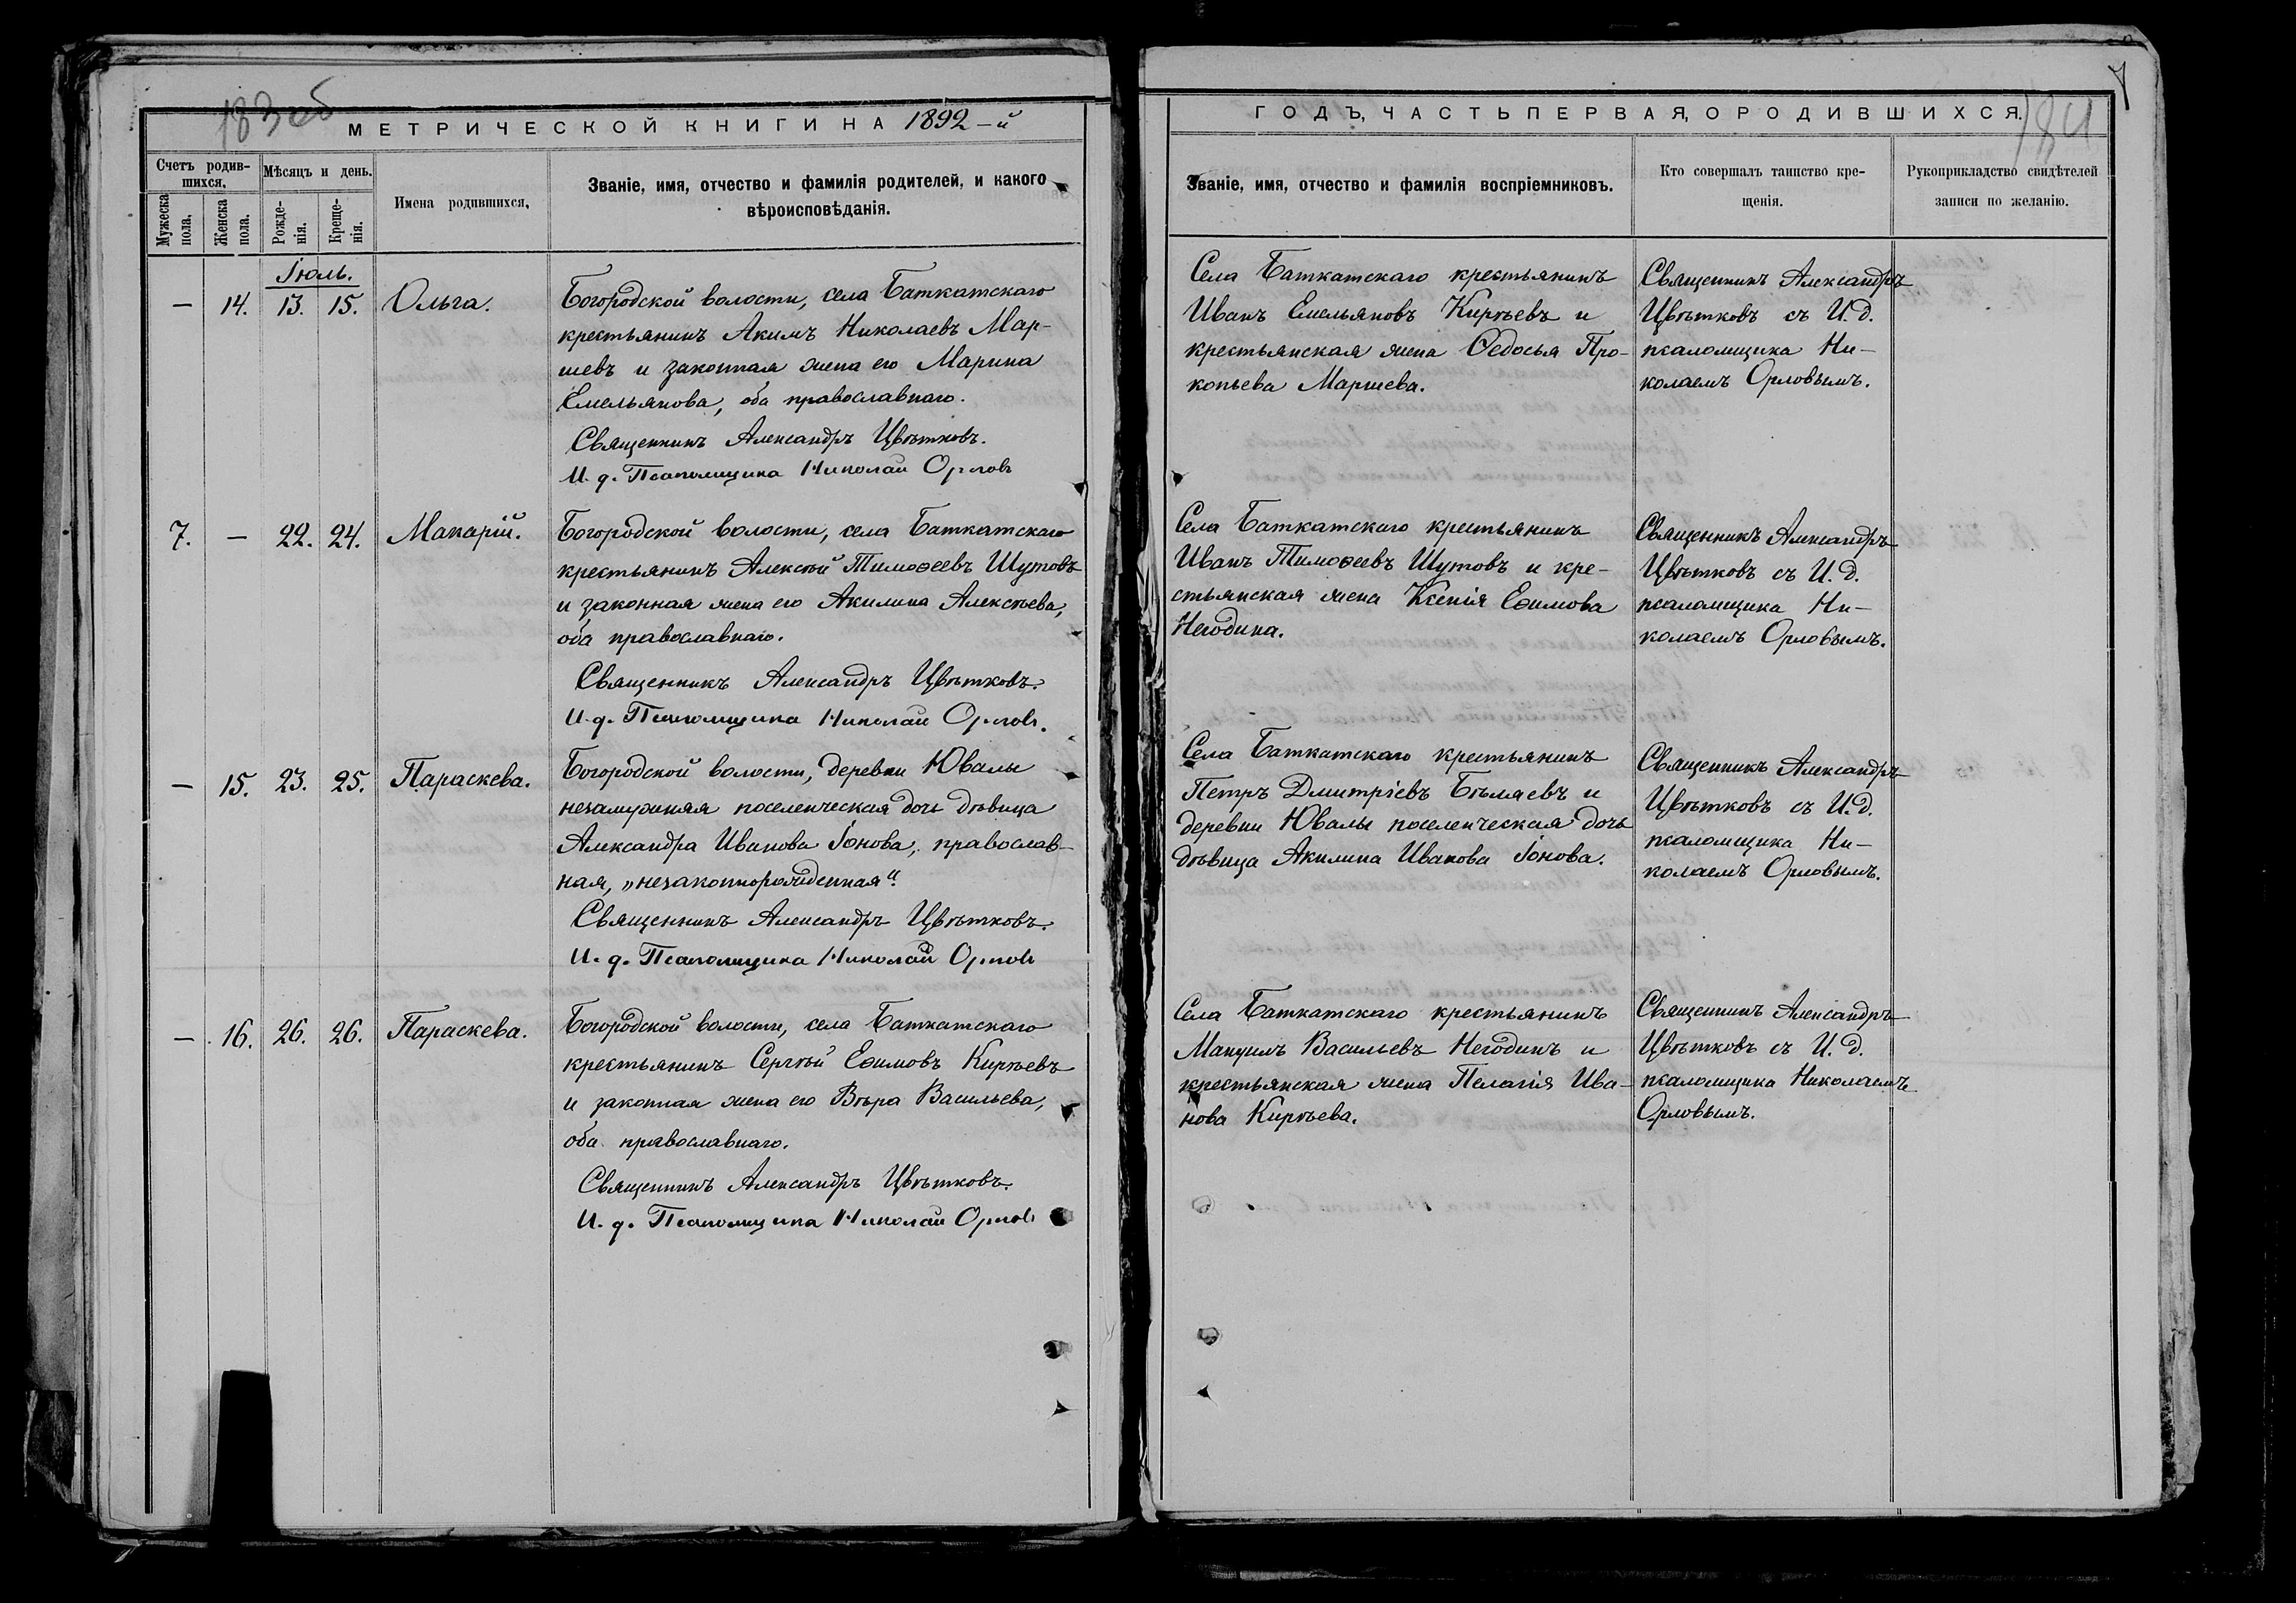 183 об
МЕТРИЧЕСКОЙ КНИГИ НА 1892-й
Счетъ родив-
шихся.
Мѣсяцъ и день.
Имена родившихся.
Званіе, имя, отчество и фамилія родителей, и какого
вѣроисповѣданія.
Мужеска
пола.
Женска
пола.
Рожде-
нія.
Креще-
нія.
Іюль.
— 14. 13. 15. Ольга.
Богородской волости, села Баткатскаго
крестьянинъ Акимъ Николаевъ Мар-
шевъ и законная жена его Марина
Емельянова, оба православнаго.
Священникъ Александръ Цвѣтковъ.
И. д. Псаломщика Николай Орловъ
7. — 22. 24. Макарій.
Богородской волости, села Баткатскаго
крестьянинъ Алексѣй Тимоѳеевъ Шутовъ
и законная жена его Акилина Алексѣева,
оба православнаго.
Священникъ Александръ Цвѣтковъ.
И. д. Псаломщика Николай Орловъ.
— 15. 23. 25. Параскева.
Богородской волости, деревни Ювалы
незамужняя поселенческая дочь дѣвица
Александра Иванова Іонова, православ-
ная, „незаконнорожденная".
Священникъ Александръ Цвѣтковъ.
И. д. Псаломщика Николай Орловъ
— 16. 26. 26. Параскева.
Богородской волости, села Баткатскаго
крестьянинъ Сергѣй Еѳимовъ Кирѣевъ
и законная жена его Вѣра Васильева,
оба православнаго.
Священникъ Александръ Цвѣтковъ.
И. д. Псаломщика Николай Орловъ
7
184
ГОДЪ, ЧАСТЬ ПЕРВАЯ, О РОДИВШИХСЯ.
Званіе, имя, отчество и фамилія воспріемниковъ.
Кто совершалъ таинство кре-
щенія.
Рукоприкладство свидѣтелей
записи по желанію.
Села Баткатскаго крестьянинъ
Иванъ Емельяновъ Кирѣевъ и
крестьянская жена Ѳедосья Про-
копьева Маршева.
Священникъ Александръ
Цвѣтковъ съ И. д.
псаломщика Ни-
колаемъ Орловымъ.
Села Баткатскаго крестьянинъ
Иванъ Тимоѳеевъ Шутовъ и кре-
стьянская жена Ксенія Еѳимова
Негодина.
Священникъ Александръ
Цвѣтковъ съ И. д.
псаломщика Ни-
колаемъ Орловымъ.
Села Баткатскаго крестьянинъ
Петръ Дмитріевъ Бѣляевъ и
деревни Ювалы поселенческая дочь
дѣвица Акилина Иванова Іонова.
Священникъ Александръ
Цвѣтковъ съ И. д.
псаломщика Ни-
колаемъ Орловымъ.
Села Баткатскаго крестьянинъ
Мануилъ Васильевъ Негодинъ и
крестьянская жена Пелагія Ива-
нова Кирѣева.
Священникъ Александръ
Цвѣтковъ съ И. д.
псаломщика Николаемъ
Орловымъ.